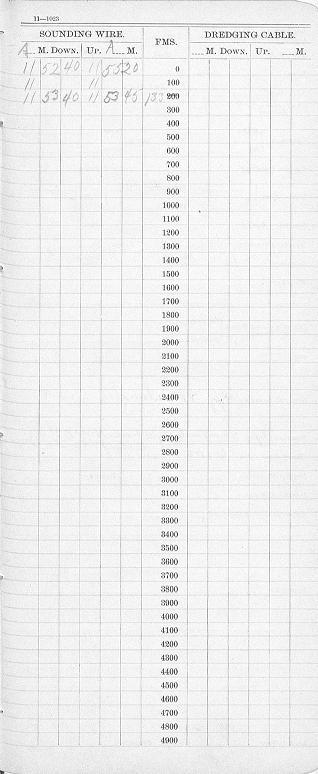 11—1023
SOUNDING WIRE. FMS. DREDGING CABLE.
A M. DOWN. UP. A M. M. DOWN. UP. M.
11 52 40 11 55 20 0
11 11 100
11 53 40 11 53 45 133 200
300
400
500
600
700
800
900
1000
1100
1200
1300
1400
1500
1600
1700
1800
1900
2000
2100
2200
2300
2400
2500
2600
2700
2800
2900
3000
3100
3200
3300
3400
3500
3600
3700
3800
3900
4000
4100
4200
4300
4400
4500
4600
4700
4800
4900